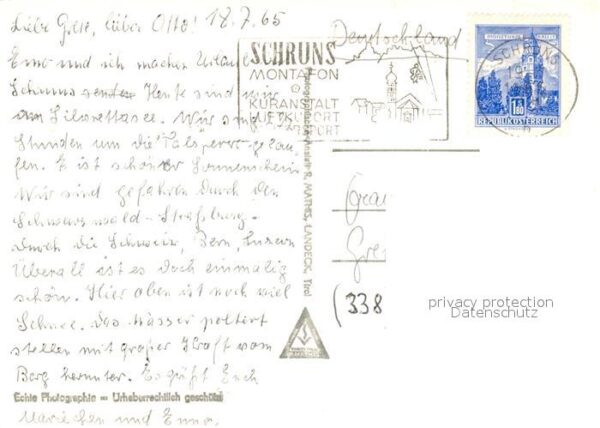 Liebe Grete, lieber Otto! 18.7.65
Enno und ich machen Urlaub
Schruns Heute sind wir
am Silvrettasee. Wir sind
Stunden um die Talsperre gelau-
fen. Es ist schönster Sonnenschein
Wir sind gefahren durch den
Schwarzwald - Straßburg -
durch die Schweiz, Bern, Luzern
Überall ist es doch einmalig
schön. Hier oben ist noch viel
Schnee. Das Wasser poltert
stellen mit großer Kraft vom
Berg herunter. Es grüßt Euch
Echte Photographie — Urheberrechtlich geschützt
Mariechen und Enno.
R. MATHIS, LANDECK, Tirol
Deutschland
SCHRUNS
MONTAFON
KURANSTALT
LUFTKURORT
SPORT
1.80
REPUBLIK ÖSTERREICH
SCHRUNS
Frau
Gre
(338
privacy protection
Datenschutz